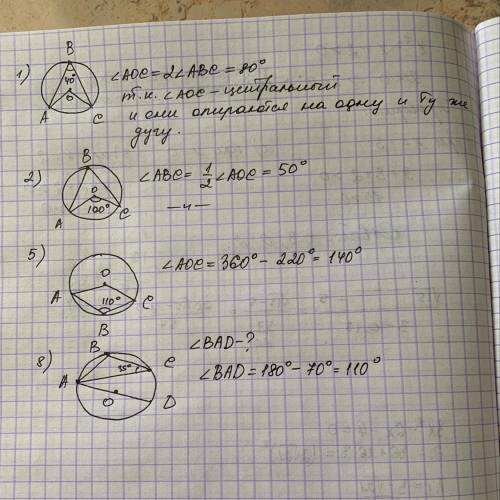 1)
B
40°
O
A
C
∠AOC = 2∠ABC = 80°
т.к. ∠AOC - центральный
и они опираются на одну и ту же
дугу.
2)
B
O
100°
A
C
∠ABC = 1/2 ∠AOC = 50°
—"—
5)
O
A
110°
C
B
∠AOC = 360° - 220° = 140°
8)
B
C
35°
A
O
D
∠BAD - ?
∠BAD = 180° - 70° = 110°